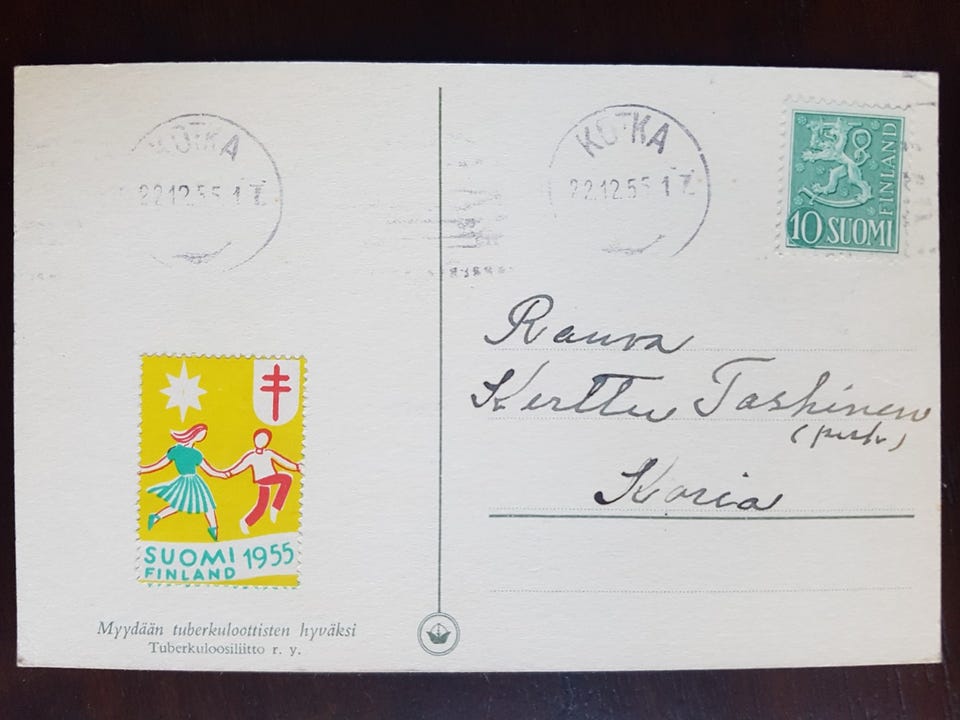 KOTKA
22.12.55 17
KOTKA
22.12.55 17
FINLAND
10 SUOMI
Rauva
Kerttu Tashinen
Koria
SUOMI 1955
FINLAND
Myydään tuberkuloottisten hyväksi
Tuberkuloosiliitto r. y.